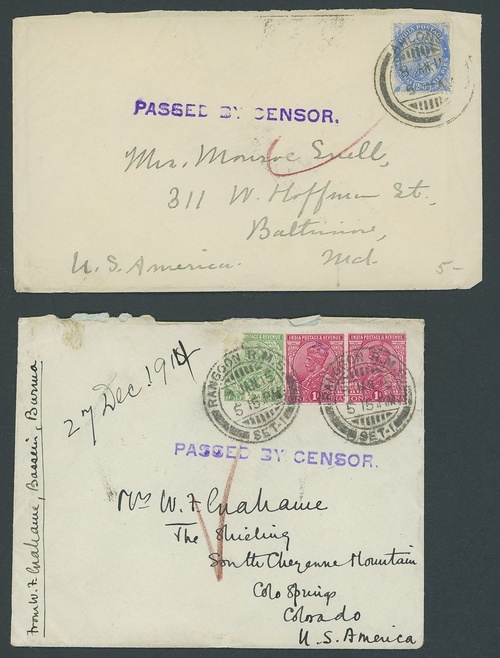 PASSED BY CENSOR.
Mrs. Monroe Snell,
311 W. Hoffman St.,
Baltimore,
U.S. America. Md.
5-
27 Dec. 1914
INDIA POSTAGE & REVENUE
INDIA POSTAGE & REVENUE
RANGOON R.M.S.
5 15 PM
SET-1
RANGOON R.M.S.
5 15 PM
SET-1
PASSED BY CENSOR.
Mrs W. F. Grahame
The Shieling
South Cheyenne Mountain
Colo Springs
Colorado
U.S. America
From W. F. Grahame, Bassein, Burma